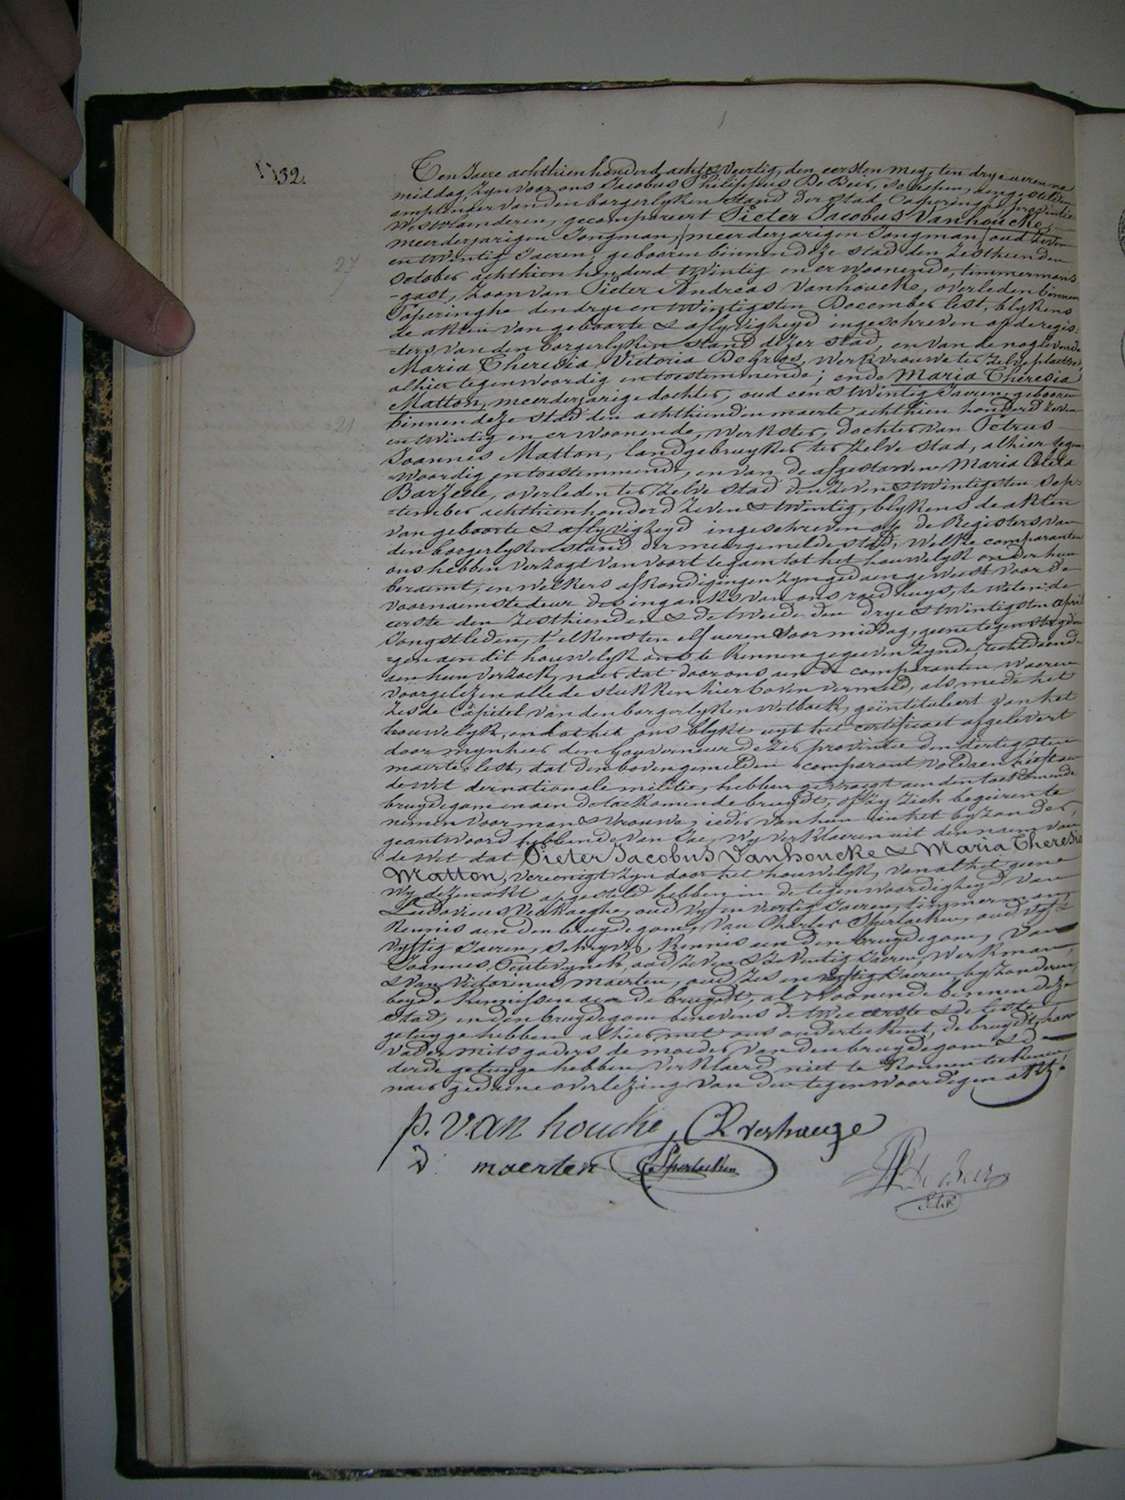 N° 32.
Ten Jaere achthienhonderd acht & veertig, den eersten mey, ten drye ueren na
middag, zyn voor ons Jacobus Philippus De Beir, schepen, aengestelden
amptenaer van den borgerlyken stand der stad Poperinghe, provintie
Westvlaenderen, gecompareert Pieter Jacobus Vanhoucke,
meerderjarigen Jongman, /meerderjarigen Jongman/ oud zeven
27
en twintig Jaeren, gebooren binnen deze stad den zesthienden
October achthien honderd twintig en er woonende, timmermans
-gast, zoon van Pieter Andreas Vanhoucke, overleden binnen
Poperinghe den drye en twintigsten December lest, blykens
de akten van geboorte & aflyvigheyd ingeschreven op de regis-
-ters van den borgerlyken stand dezer stad, en van de nog levende
Maria Theresia Victoria Degroos, werkvrouwe ter zelve plaetse,
alhier tegenwoordig en toestemmende; ende Maria Theresia
Matton, meerderjarige dochter, oud een & twintig Jaeren, gebooren
21
binnen deze stad den achthienden maerte achthien honderd zeven
en twintig en er woonende, werkster, dochter van Petrus
Joannes Matton, landgebruyker ter zelve stad, alhier tegen-
-woordig en toestemmende, en van de afgestorvene Maria
Barzeele, overleden ter zelve stad den zeven & twintigsten Sep-
-tember achthienhonderd zeven & twintig, blykens de akten
van geboorte & aflyvigheyd ingeschreven op de Registers van
den borgerlyken stand der meergemelde stad; Welke comparanten
ons hebben verzogt van voort te gaen tot het houwelyk onder hun
beraemt, en welkers afkondigingen zyn gedaen geweest voor de
voornaemste deur des ingangs van ons raedhuys, te weten: de
eerste den zesthienden & de tweede den drye & twintigsten april
Jongstleden, t'elkens ten elf ueren voor middag, geene tegenstrydin-
-gen aen dit houwelyk ons te kennen gegeven zynde, rechtdoende
aen hun verzoek, naer dat door ons aen de comparanten waeren
voorgelezen alle de stukken hier boven vermeld, als mede het
zesde Capitel van den borgerlyken Wetboek, geïntituleert van het
houwelyk, en dat het ons blykt uyt het certificaet afgelevert
door mynheer den Gouverneur dezer provintie den dertigsten
maerte lest, dat den bovengemelden comparant voldaen heeft aen
de Wet der nationale militie, hebben gevraegt aen den toekomende
bruydegom en aen de toekomende bruydt, of zy zich begeiren te
nemen voor man & vrouwe; ieder van hun in het byzonder
geantwoord hebbende van Jae, wy verklaeren uit den naem van
de Wet dat Pieter Jacobus Vanhoucke & Maria Theresia
Matton, vereenigt zyn door het houwelyk, van al het geene
wy dezen akt opgesteld hebben in de tegenwoordigheyd van
Ludovicus Verhaeghe, oud vyf en veertig Jaeren, timmerman,
kennis aen den bruydegom, van Charles Sperlacken, oud
vyftig Jaeren, schryver, kennis aen den bruydegom, van
Joannes, oud zeven & twintig Jaeren, werkman,
& van Victorinus Maerten, oud zes en vyftig Jaeren, byzonderen,
beyde kennissen aen de bruydt, al woonende binnen deze
Stad, en den bruydegom benevens de twee eerste & de leste
getuyge hebben alhier met ons onderteekent, de bruydt, haer
vader mitsgaders de moeder van den bruydegom & de
derde getuyge hebben verklaerd niet te konnen teekenen
naer gedaene overlezing van den tegenwoordigen akt.
p. van houcke, L verhaege
v maerten C Sperlacken